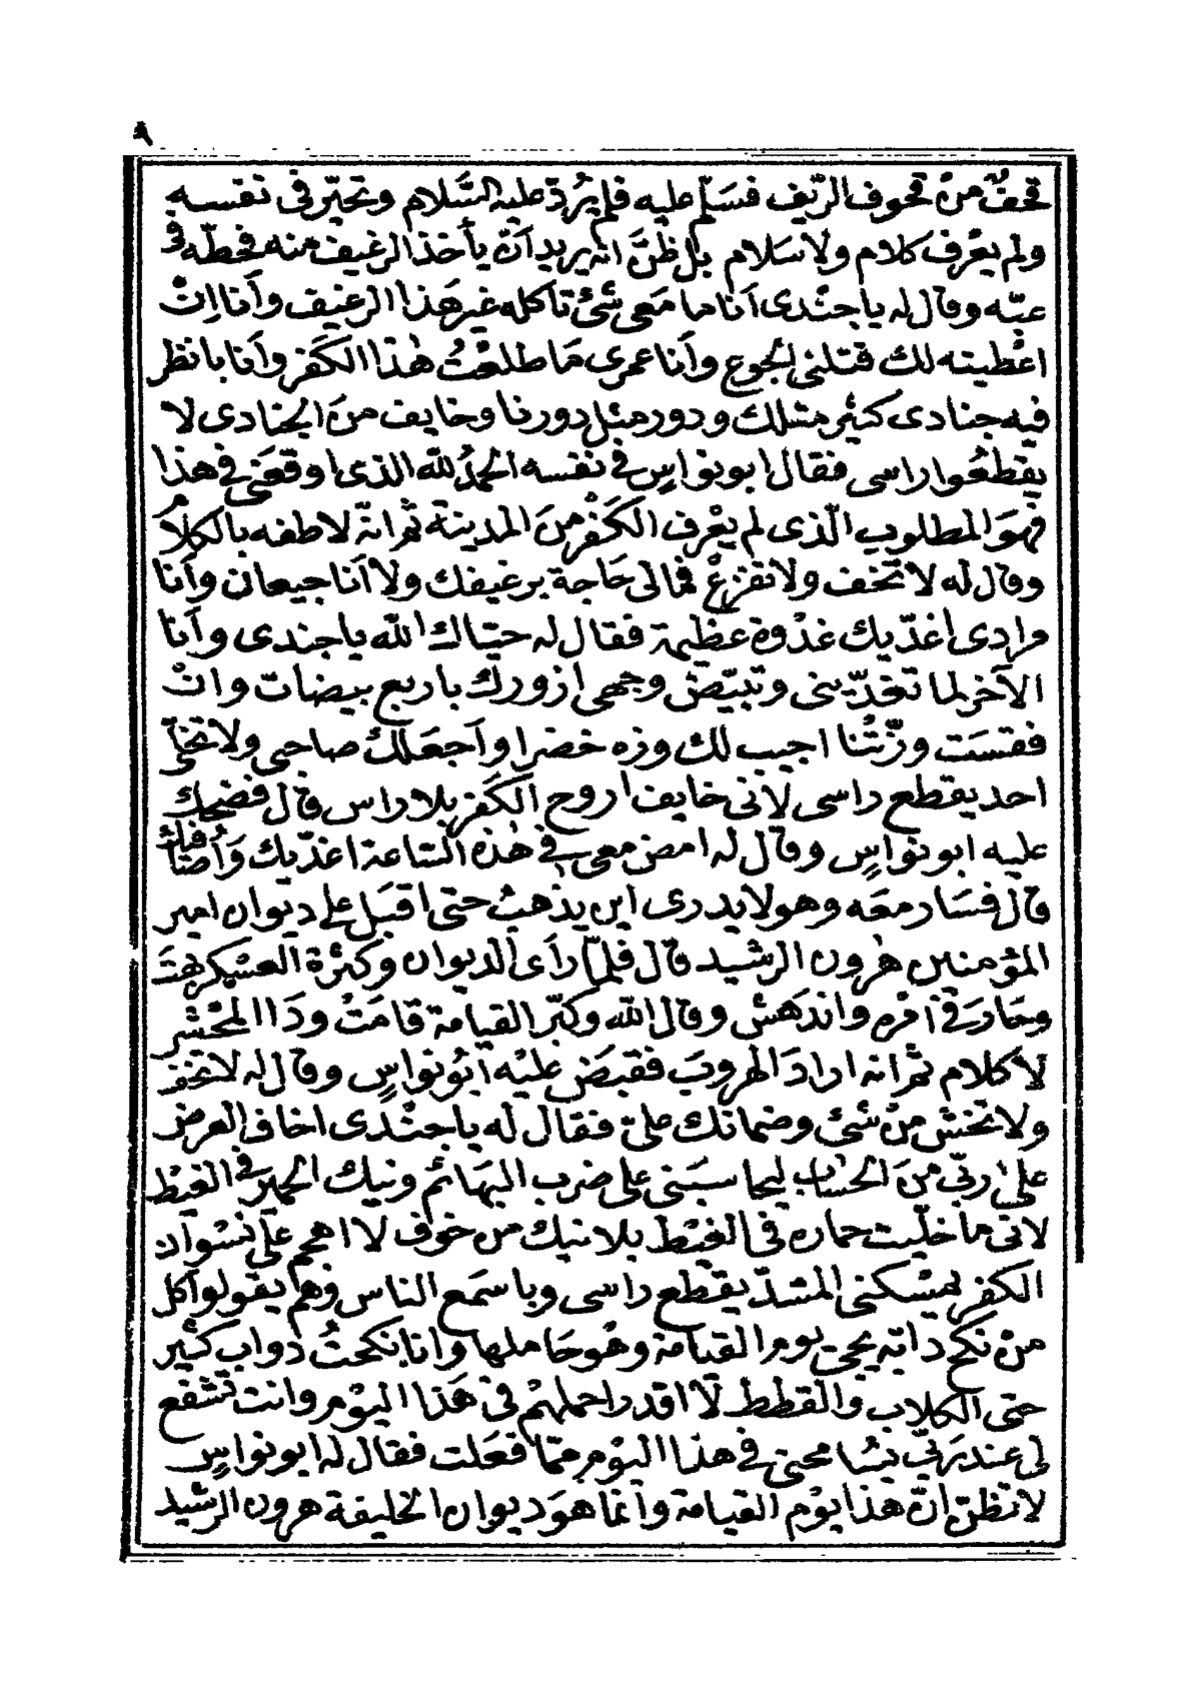 ٩
قحفٌ منْ قحوف الريّف فسَلّم عليه فلم يُردّ عليه السَّلام وتحيّر فى نفسه
ولم يعْرف كلام ولا سَلام بل ظنَّ انه يريد أنّ يأخذ الرغيف منه فحطّه فى
عبّه وقال له ياجنْدى أنا ما مَعى شئ تأكله غير هَذا الرغيف وأنا انْ
اعْطيته لك قتلنى الجوع وأنا عمرى مَا طلعْتُ هٰذا الكَفر وأنا بانظر
فيه جنادىَ كثير مثلك ودور مثل دورنا وخايف منَ الجنادى لا
يقطعُوا راسى فقال ابو نواسٍ فى نفسه الحمدُ لله الذى اوقعَنى فى هذا
فهوَ المطلوب الّذى لم يعْرف الكَفْر منَ المدينة ثم انّه لاطفه بالكلامُ
وقال له لا تخف ولا تفزعْ فمالى حَاجة برغيفك ولا أنا جيعان وأنا
مرادى اغدّيك غدْوة عظيمة فقال له حيّاك الله ياجندى وأنا
الآخر لما تغدّينى وتبيّض وجهى ازورك باربع بيضات وانْ
فقسَت وزّتُنا اجيب لك وزه خضرا وأجعَلكْ صاحبى ولا تخلّى
احد يقطع راسى لأنى خايف اروح الكَفر بلا راس قال فضحك
عليه ابو نواسٍ وقال له امض معى فى هٰذه السّاعة اغدّيك وَأصافيك
قال فسَار معَه وهو لا يدرى اين يذهبُ حتى اقبَل على ديوان امير
المؤمنين هٰرون الرشيد قال فلمّا رأى الديوان وكثرة العسْكر بهتَ
وحَارَ فى أمْره واندَهَش وقال اللّه وكبّر القيامة قامَتْ ودَا المحْشر
لا كلام ثم انه ارادَ الهروبَ فقبَض عليْه أبُو نواسٍ وقال له لا تخف
ولا تخش منْ شئ وضمانك علىّ فقال له ياجنْدى اخاف العرض
علىٰ ربّى منَ الحسَاب ليحاسبَنى على ضرب البهَائم ونيك الحمير فى الغيْط
لانى ما خلّيت حماره فى الغيْط بلا نيك من خوف لا اهجم على نسْوان
الكفر يمسْكنى المشدّ يقطع راسى وباسمَع الناس وهُم يقولوا كل
منْ نكح دابّه يجئ يوم القيامة وهُوحَاملها وانا نكحتُ دواب كثير
حتى الكلاب والقطط لا اقدر احملهْم فى هَذا اليوْم وانت تشفع
لى عند رَبّى يسَامحنى فى هذا اليوْم ممّا فعَلت فقال له ابو نواسٍ
لا تظنّ انّ هَذا يوْم القيامة وأنما هوَ ديوان الخليفة هرون الرشيد